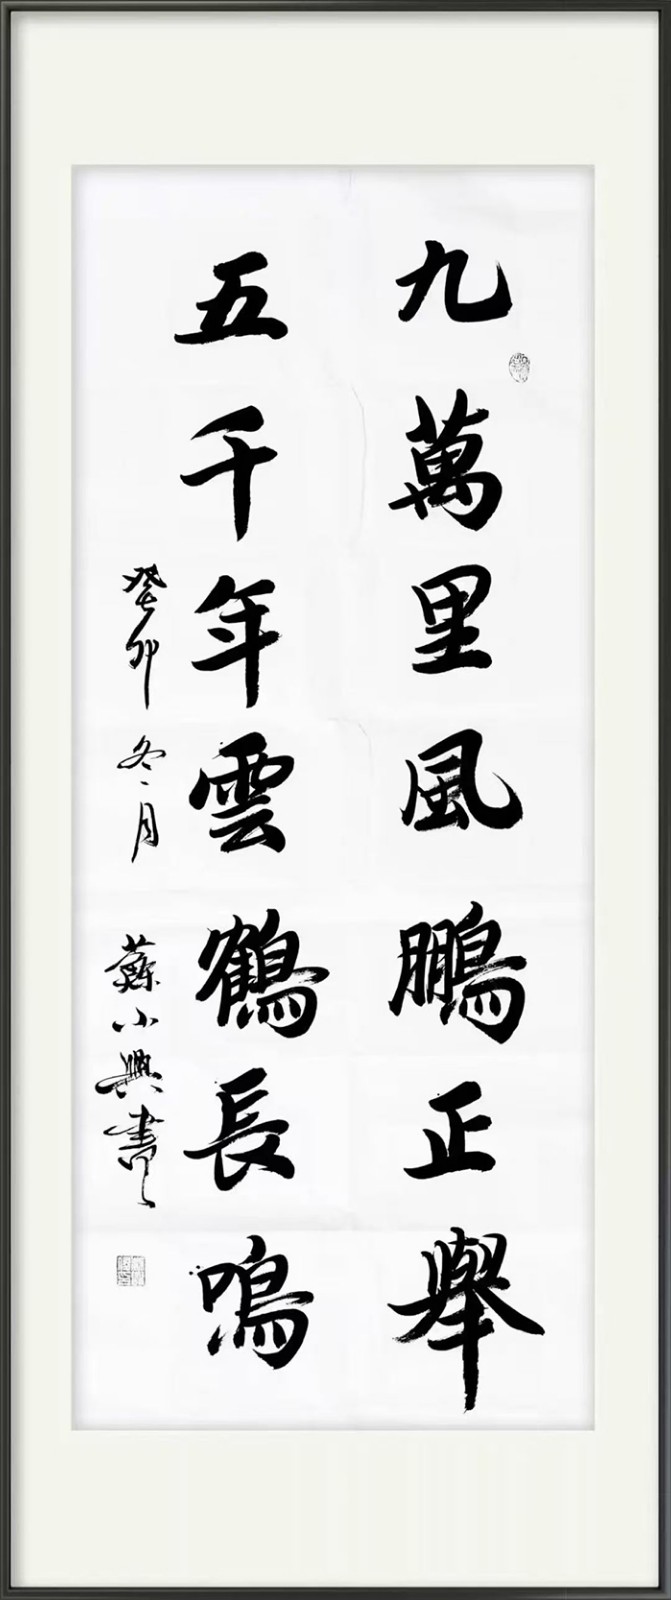 九萬里風鵬正舉
五千年雲鶴長鳴
癸卯冬月 蘇小興書